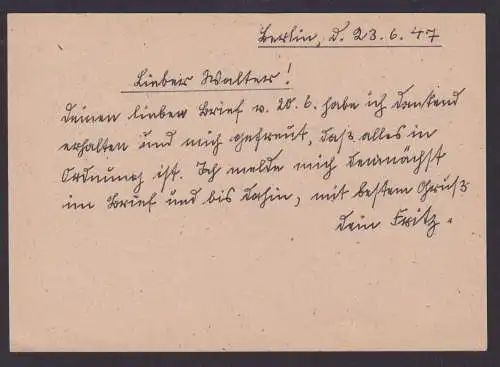 Berlin, d. 23.6.47
Lieber Walter!
Deinen lieben Brief v. 20.6. habe ich dankend
erhalten und mich gefreut, daß alles in
Ordnung ist. Ich melde mich demnächst
im Brief und bis dahin, mit bestem Gruß
Dein Fritz.